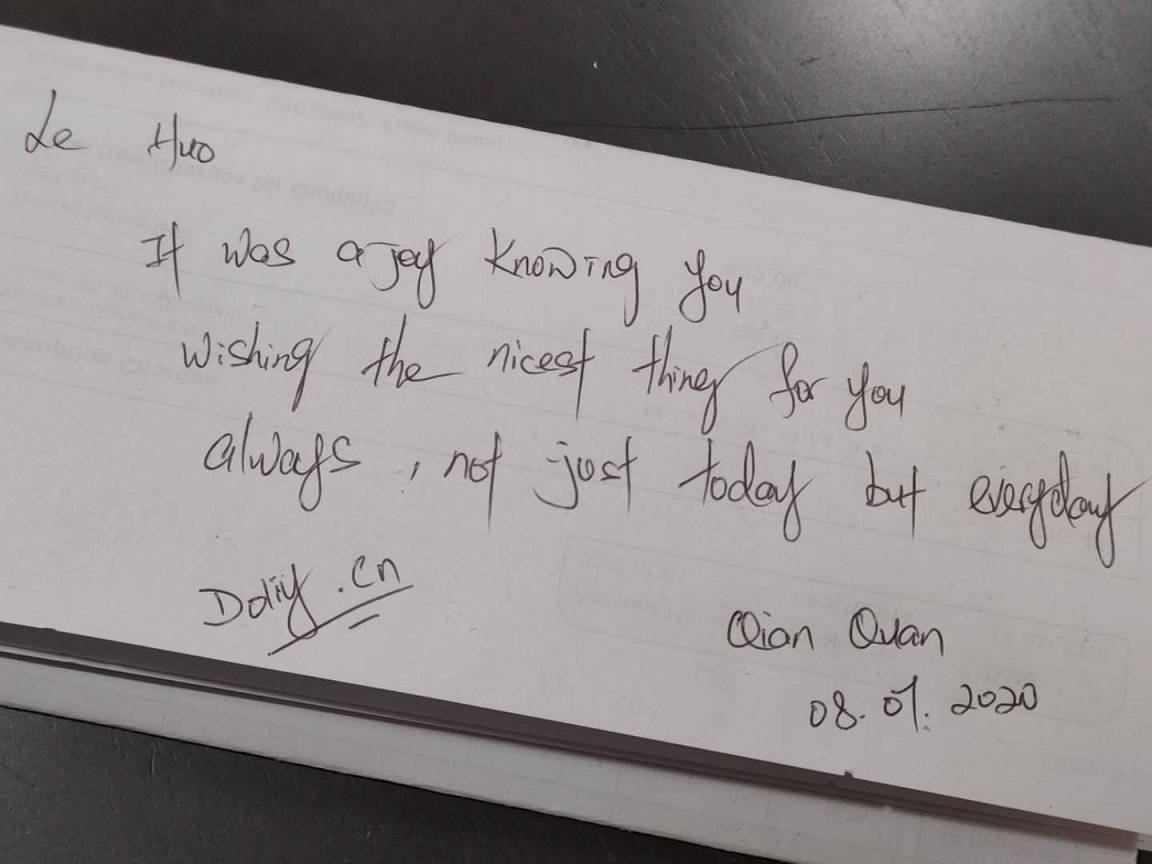 Le Huo
It was a joy knowing you
wishing the nicest thing for you
always, not just today but everyday
Doliy.cn
Qian Quan
08.07.2020